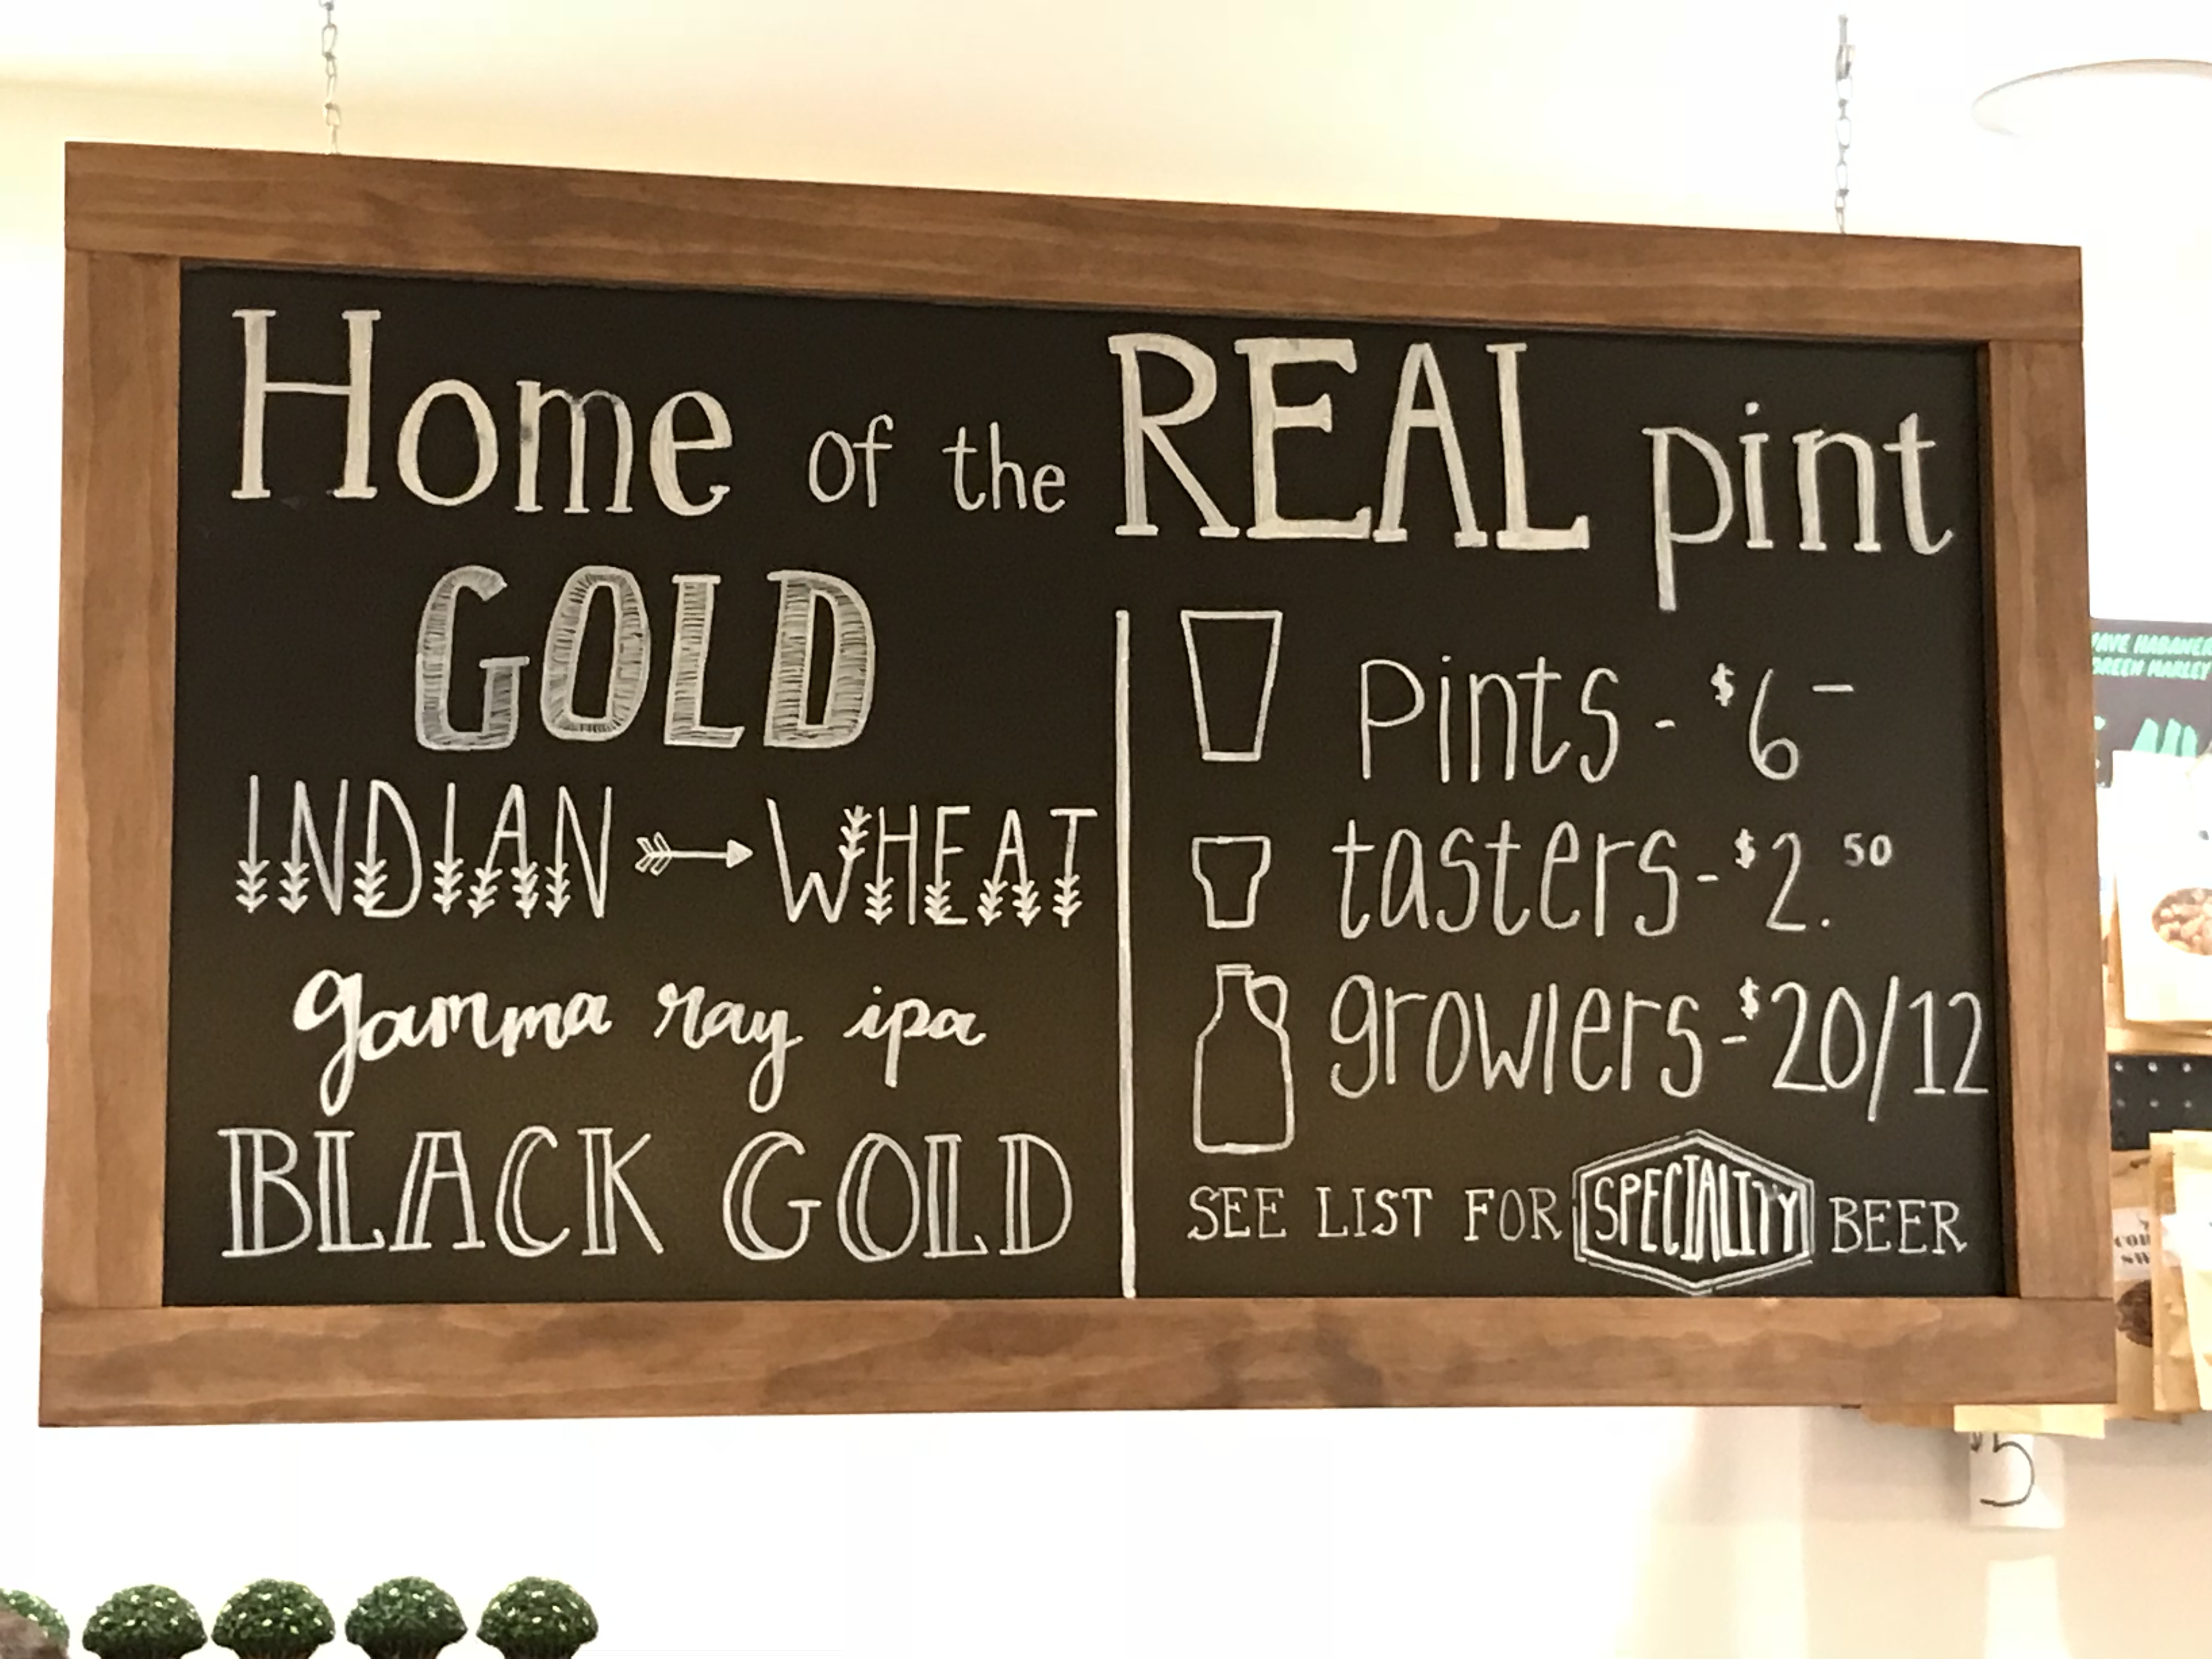 Home of the REAL pint
GOLD
INDIAN WHEAT
gamma ray ipa
BLACK GOLD
pints - $6 –
tasters - $2.50
growlers - $20/12
SEE LIST FOR SPECIALITY BEER
HABANER
GREEN MARLEY
$5